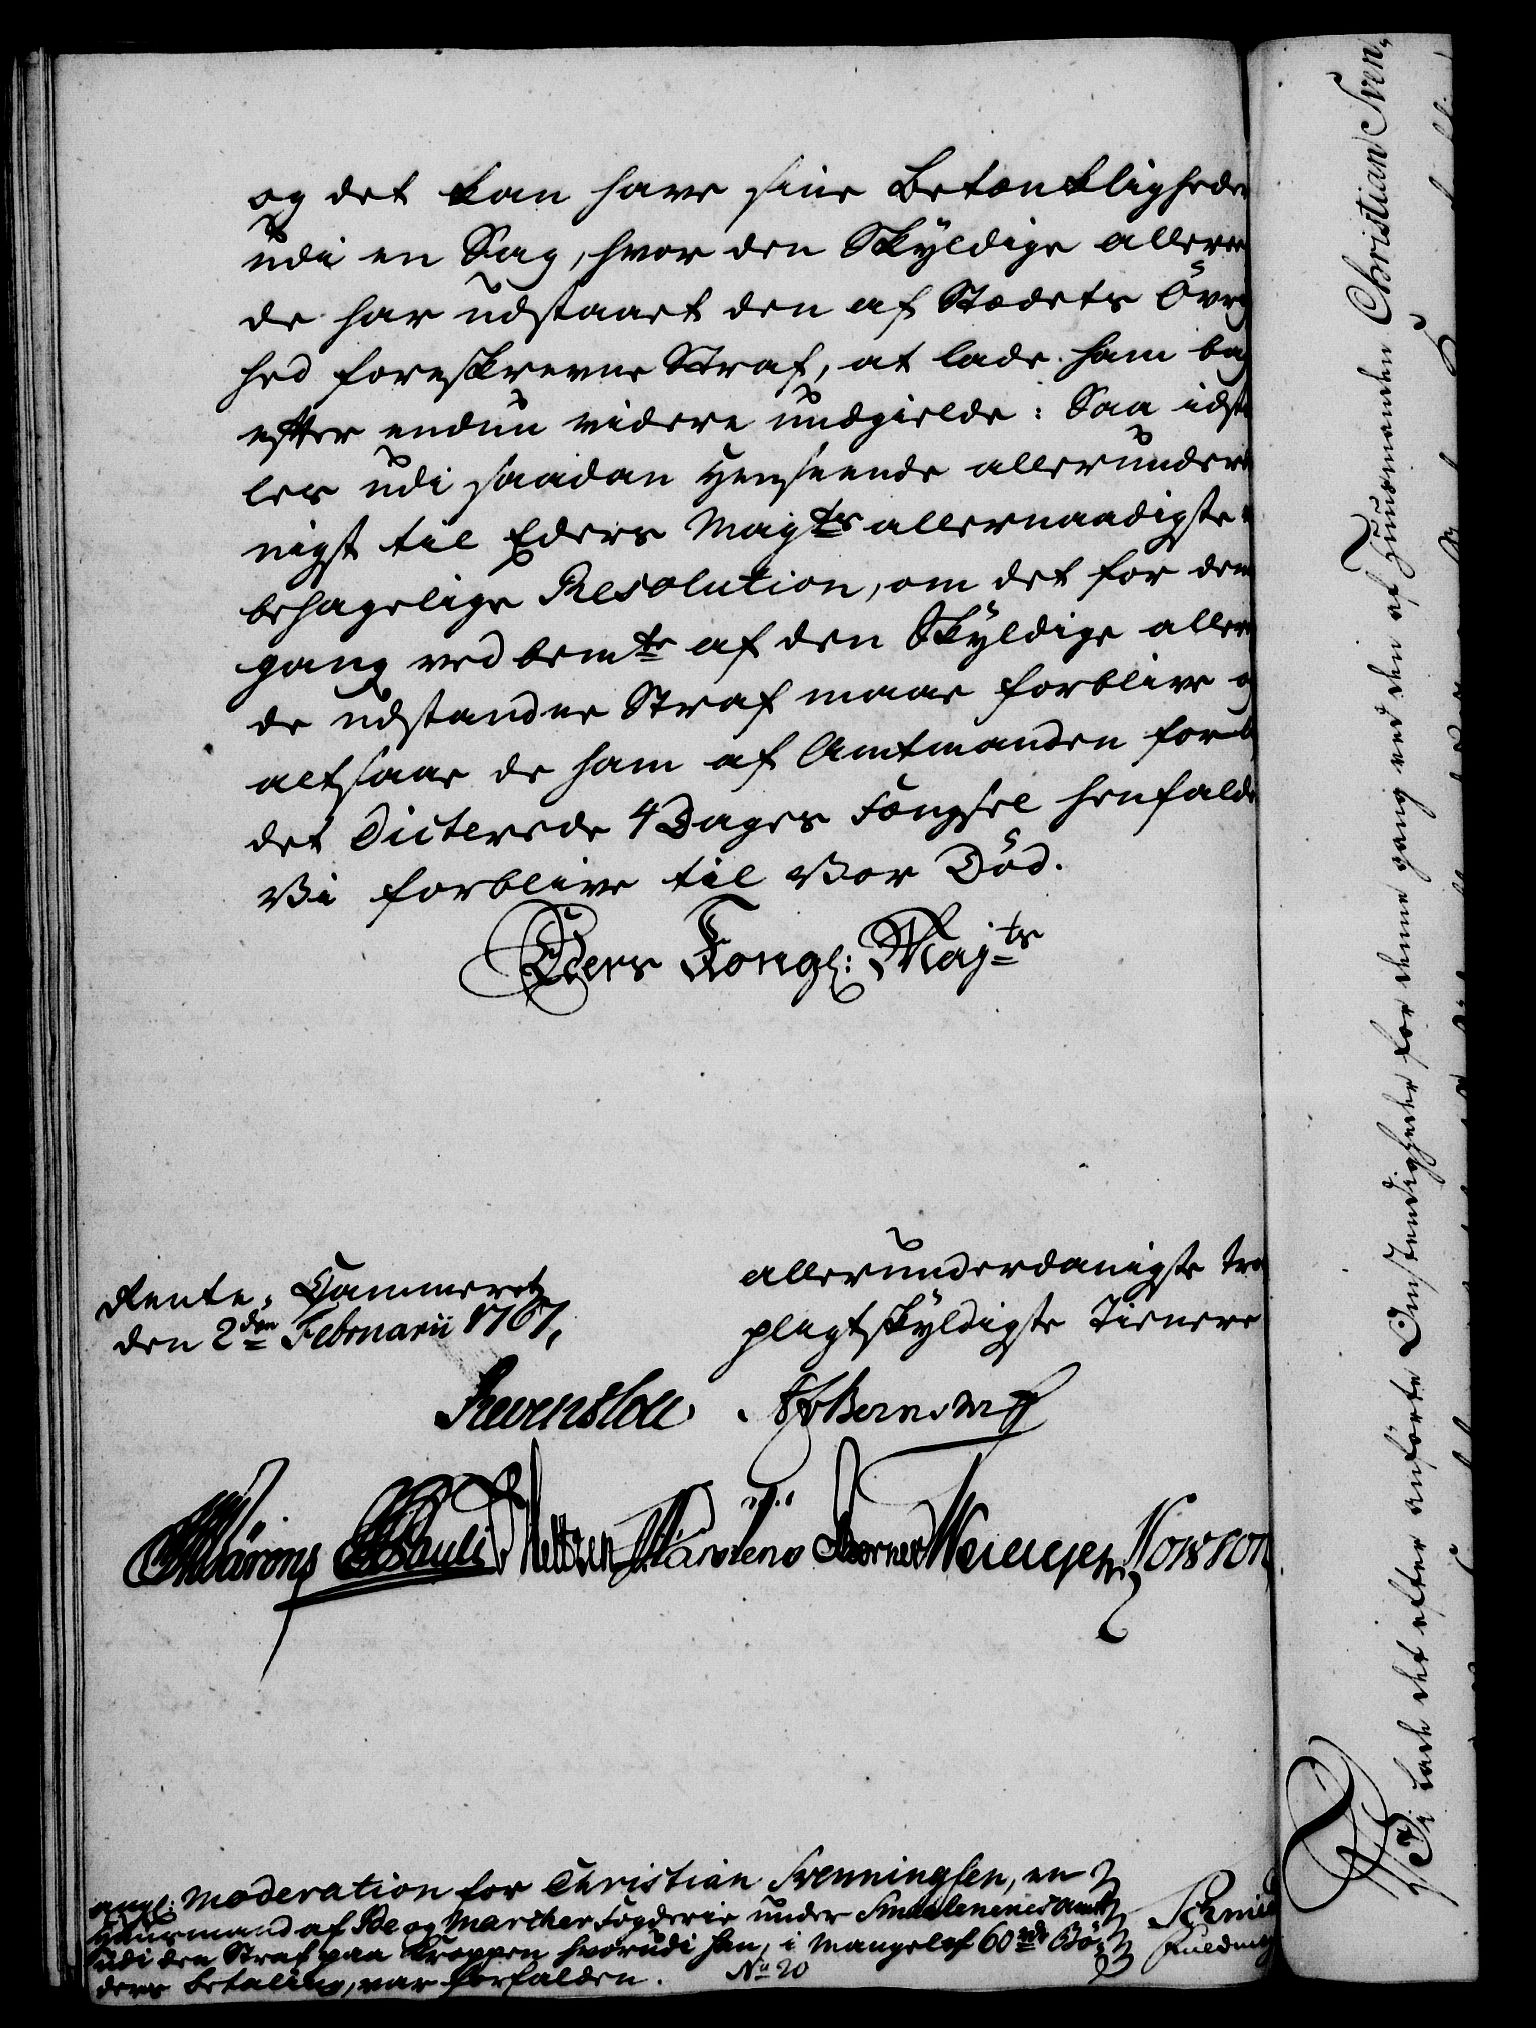 og det kan have sine Betænkligheder
udi en Sag, hvor den Skyldige alleree
de har udstaaet den af Stædets Øvrig
hed foreskrevne Straf, at lade ham bag
efter endnu videre undgielde: Saa indstil
les udi saadan Henseende allerunderda
nigst til Eders Maj.ts allernaadigste
behagelige Resolution, om det for denne
gang ved bem.te af den Skyldige alleree
de udstandne Straf maae forblive og
altsaa de ham af Amtmanden forud
det Dicterede 4 Dages Fængsel henfalde
Vi forblive til Vor Död.
Eders Kongl: Maj.ts
Rente-Cammeret
den 2den Februarii 1767.
allerunderdanigste troe
pligtskyldigste Tienere
Reventlou AGBernstorff
Wärons Pauli Meltzen Kärstens
angl: Moderation for Christian Svenningsen, en
Huusmand af Ide og Marcher Fogderie under Smaalenenes Amt
udi den Straf paa Kroppen hvorudi han, i Mangel af 60 rd Bö-
ders betaling, var forfalden. No 20
Schmidt
Fuldmæg
Vi lade det efter anförte Omstendigheder for denne gang ved den af Huusmanden Christian Sven,